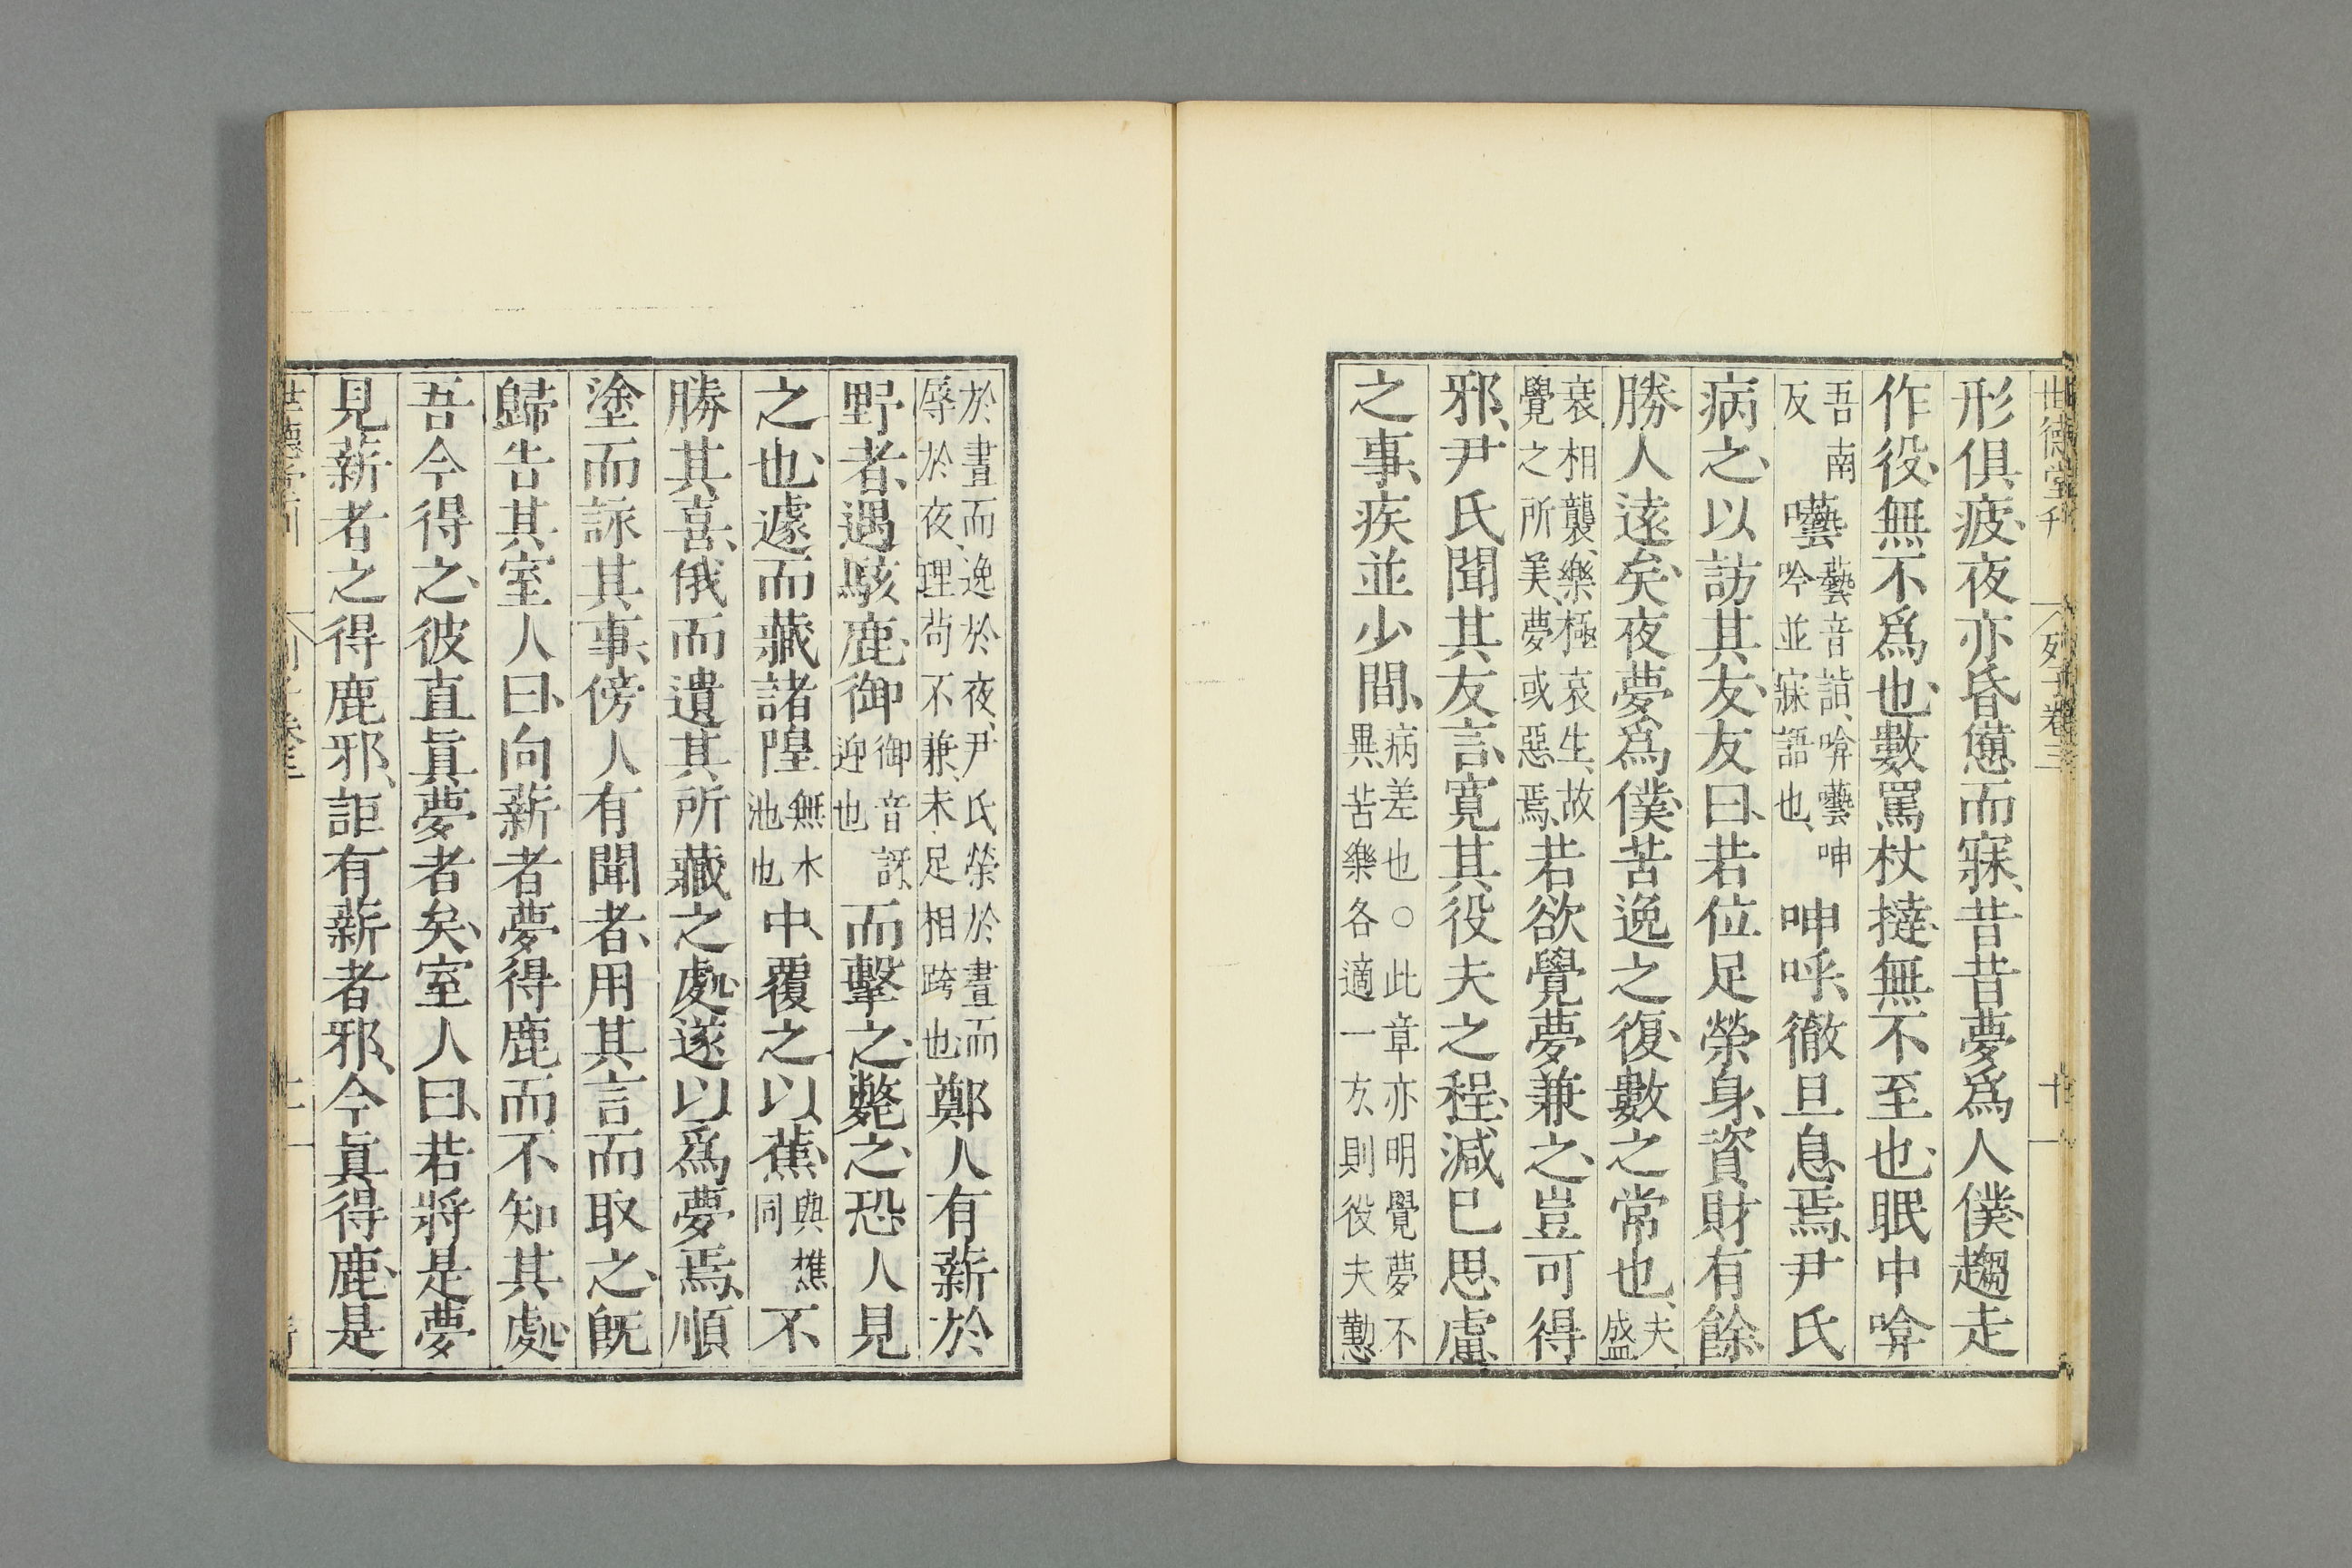 世德堂刊 列子卷三 十
形俱疲、夜亦昏憊而寐、昔昔夢爲人僕、趨走
作役、無不爲也、數罵杖撻、無不至也、眠中啽
吾南反囈藝音詣、啽囈呻吟並寐語也、呻呼、徹旦息焉、尹氏
病之、以訪其友、友曰、若位足榮身、資財有餘、
勝人遠矣、夜夢爲僕、苦逸之復、數之常也、夫盛
衰相襲、樂極哀生、故覺之所美、夢或惡焉、若欲覺夢兼之、豈可得
邪、尹氏聞其友言、寬其役夫之程、減已思慮
之事、疾並少間、病差也○此章亦明覺夢不異苦樂各適一方、則役夫懃
於晝而逸於夜、尹氏榮於晝而辱於夜、理苟不兼、未足相跨也、鄭人有薪於
野者、遇駭鹿、御御音訝、迎也而擊之、斃之、恐人見
之也、遽而藏諸隍無水池也中、覆之以蕉、與樵同不
勝其喜、俄而遺其所藏之處、遂以爲夢焉、順
塗而詠其事、傍人有聞者、用其言而取之、旣
歸告其室人曰、向薪者夢得鹿而不知其處
吾今得之、彼直眞夢者矣、室人曰、若將是夢
見薪者之得鹿邪、詎有薪者邪、今眞得鹿、是
世德堂刊